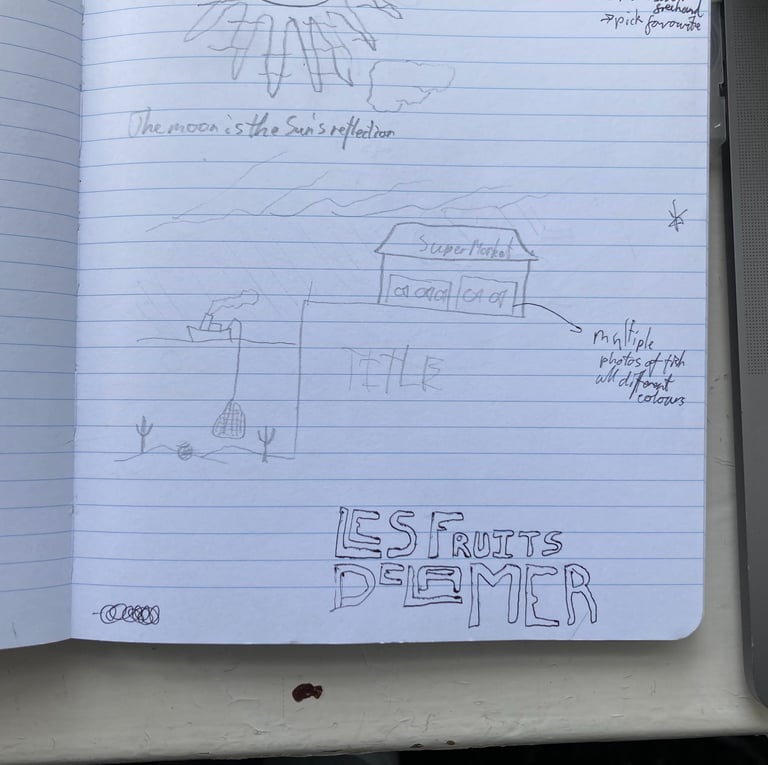 freehand
→pick favourite
The moon is the Sun's reflection
SuperMarket
multiple
photos of fish
all different
colours
TITLE
LES FRUITS
DE LA MER